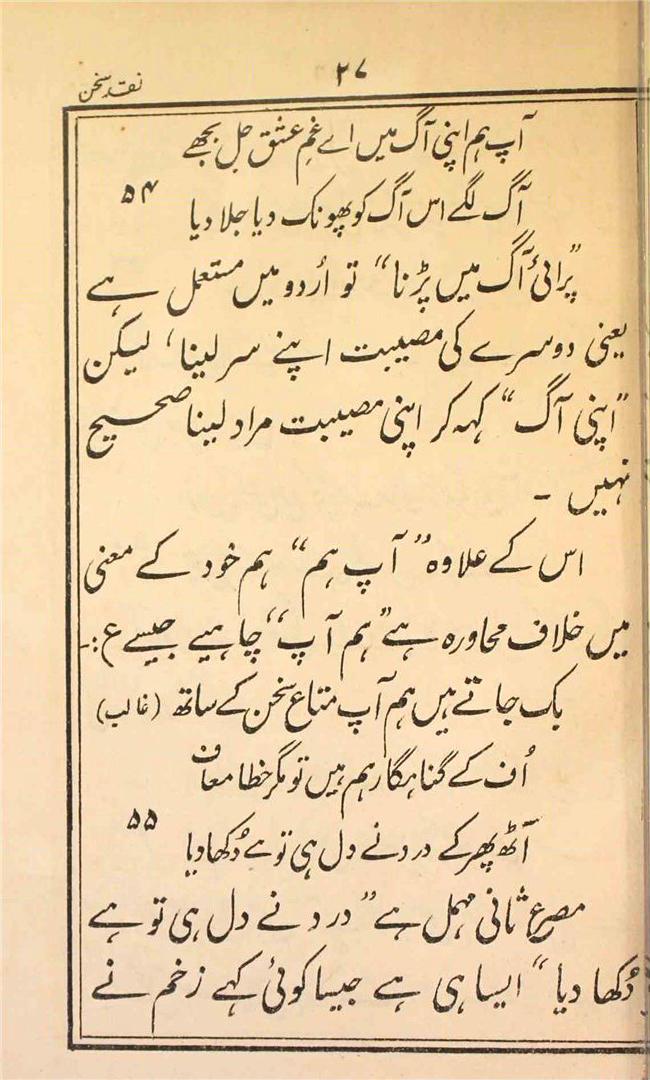 نقد سخن
۲۷
آپ ہم اپنی آگ میں اے غمِ عشق جل بجھے
آگ لگے اس آگ کو پھونک دیا جلا دیا ۵۴
”پرائی آگ میں پڑنا“ تو اُردو میں مستعمل ہے
یعنی دوسرے کی مصیبت اپنے سر لینا، لیکن
”اپنی آگ“ کہہ کر اپنی مصیبت مراد لینا صحیح
نہیں -
اس کے علاوہ ”آپ ہم“ ہم خود کے معنی
میں خلاف محاورہ ہے ”ہم آپ“ چاہیے جیسے ع:-
بک جاتے ہیں ہم آپ متاع سخن کے ساتھ (غالب)
اُف کے گناہگار ہم ہیں تو مگر خطا معاف
آٹھ پہر کے درد نے دل ہی تو ہے دُکھا دیا ۵۵
مصرع ثانی مہمل ہے ”درد نے دل ہی تو ہے
دُکھا دیا“ ایسا ہی ہے جیسا کوئی کہے زخم نے